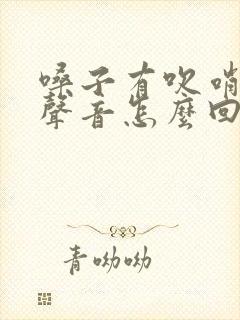 嗓子有吹哨
聲音怎麼回
青呦呦